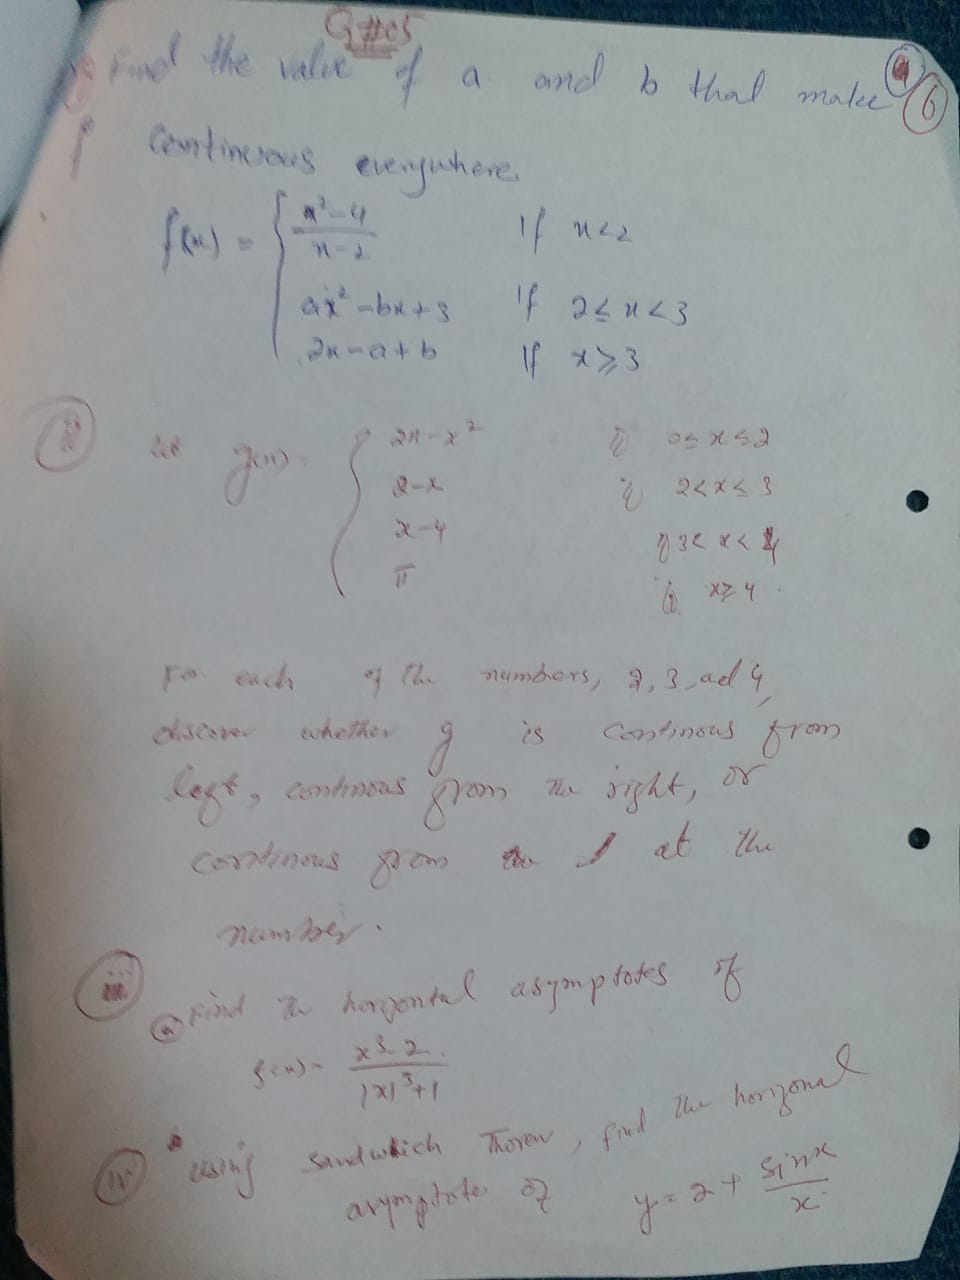 Q#05
Find the value of a and b that make
f continuous everywhere.
6
f(x) = { x²-4 / x-2 If x<2
ax² -bx+3 If 2≤x<3
2x-a+b If x≥3
ii let g(x) = { 2x-x² if 0≤x≤2
2-x if 2<x≤3
x-4 if 3<x<4
π if x≥4
For each of the numbers, 2, 3 ad 4,
discover whether g is continous from
left, continous from the right, or
continous from at the
number.
iii a Find the horizontal asymptotes of
f(x) = x³-2 / |x|³+1
iv using sandwhich Thorem, find the horizonal
asymptote of y = 2 + sinx / x